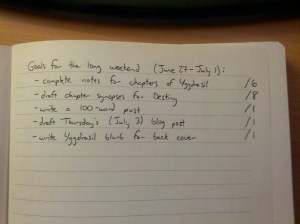 Goals for the long weekend (June 27 - July 1):
- complete notes for chapters of Yggdrasil /6
- draft chapter synopses for Destiny /8
- write a 100-word post /1
- draft Thursday's (July 3) blog post /1
- write Yggdrasil blurb for back cover /1